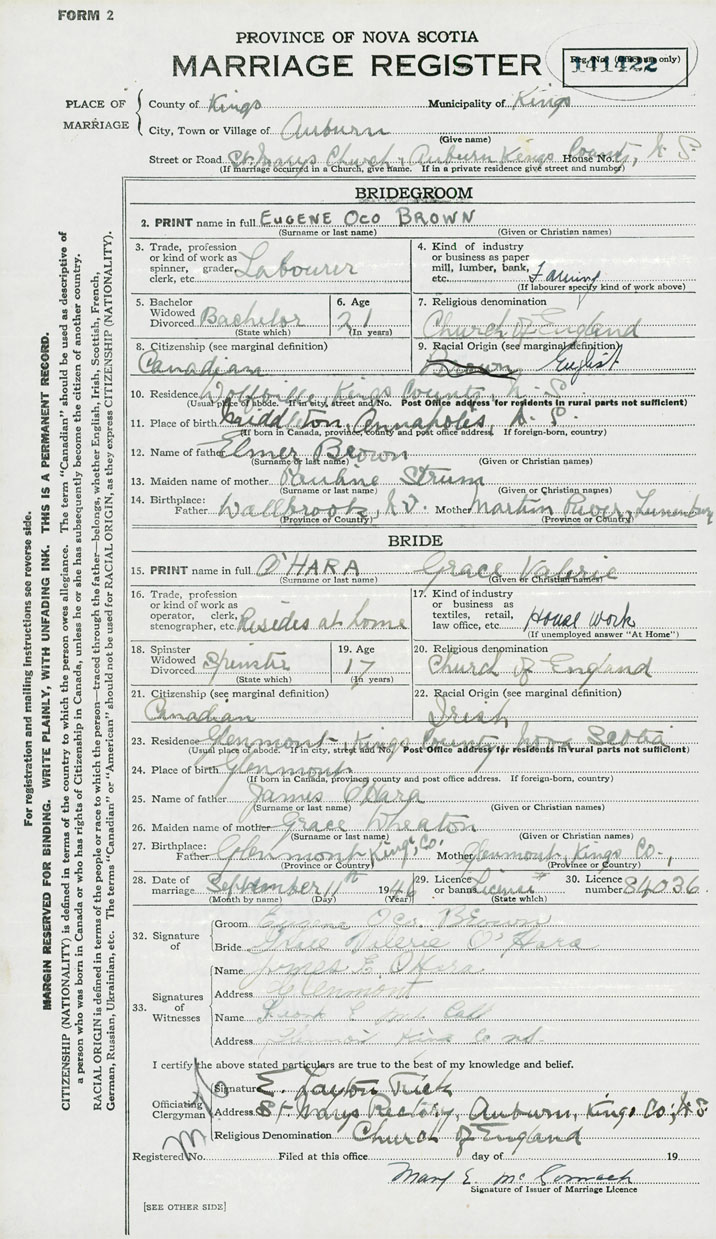 FORM 2
PROVINCE OF NOVA SCOTIA
MARRIAGE REGISTER
Reg. No. (Office use only)
141422
PLACE OF MARRIAGE
County of Kings Municipality of Kings
City, Town or Village of Auburn
(Give name)
Street or Road St. Marys Church, Auburn Kings County, N. S. House No.
(If marriage occurred in a Church, give name. If in a private residence give street and number)
BRIDEGROOM
2. PRINT name in full EUGENE OCO BROWN
(Surname or last name) (Given or Christian names)
3. Trade, profession or kind of work as spinner, grader, clerk, etc. Labourer
4. Kind of industry or business as paper mill, lumber, bank, etc. Farming
(If labourer specify kind of work above)
5. Bachelor Widowed Divorced Bachelor
(State which)
6. Age 21
(In years)
7. Religious denomination
Church of England
8. Citizenship (see marginal definition)
Canadian
9. Racial Origin (see marginal definition)
English
10. Residence Wolfville, Kings County, N. S.
(Usual place of abode. If in city, street and No. Post Office address for residents in rural parts not sufficient)
11. Place of birth Middleton, Annapolis, N. S.
(If born in Canada, province, county and post office address. If foreign-born, country)
12. Name of father Elmer Brown
(Surname or last name) (Given or Christian names)
13. Maiden name of mother Pauline Strum
(Surname or last name) (Given or Christian names)
14. Birthplace: Father Wallbrook, N.S. Mother Martins River, Lunenburg
(Province or Country) (Province or Country)
BRIDE
15. PRINT name in full O'HARA Grace Valerie
(Surname or last name) (Given or Christian names)
16. Trade, profession or kind of work as operator, clerk, stenographer, etc. Resides at home
17. Kind of industry or business as textiles, retail, law office, etc. House Work
(If unemployed answer "At Home")
18. Spinster Widowed Divorced Spinster
(State which)
19. Age 17
(In years)
20. Religious denomination
Church of England
21. Citizenship (see marginal definition)
Canadian
22. Racial Origin (see marginal definition)
Irish
23. Residence Glenmont, Kings County Nova Scotia
(Usual place of abode. If in city, street and No. Post Office address for residents in rural parts not sufficient)
24. Place of birth Glenmont
(If born in Canada, province county and post office address. If foreign-born, country)
25. Name of father James O'Hara
(Surname or last name) (Given or Christian names)
26. Maiden name of mother Grace Wheaton
(Surname or last name) (Given or Christian names)
27. Birthplace: Father Glenmont, Kings Co. Mother Glenmont, Kings Co.,
(Province or Country) (Province or Country)
28. Date of marriage September 11th 1946
(Month by name) (Day) (Year)
29. Licence or banns License
(State which)
30. Licence number 84036
32. Signature of
Groom Eugene Oco Brown
Bride Grace Valerie O'Hara
33. Signatures of Witnesses
Name James E. O'Hara
Address Glenmont
Name
Address Kings Co NS.
I certify the above stated particulars are true to the best of my knowledge and belief.
Officiating Clergyman
Signature E. Layton Tuck
Address St. Marys Rectory, Auburn, Kings Co., N.S.
Religious Denomination Church of England
Registered No. Filed at this office day of 19
Mary E. McCormack
Signature of Issuer of Marriage Licence
[SEE OTHER SIDE]
For registration and mailing instructions see reverse side.
MARGIN RESERVED FOR BINDING. WRITE PLAINLY, WITH UNFADING INK. THIS IS A PERMANENT RECORD.
CITIZENSHIP (NATIONALITY) is defined in terms of the country to which the person owes allegiance. The term "Canadian" should be used as descriptive of
a person who was born in Canada or who has rights of Citizenship in Canada, unless he or she has subsequently become the citizen of another country.
RACIAL ORIGIN is defined in terms of the people or race to which the person—traced through the father—belongs, whether English, Irish, Scottish, French,
German, Russian, Ukrainian, etc. The terms "Canadian" or "American" should not be used for RACIAL ORIGIN, as they express CITIZENSHIP (NATIONALITY).